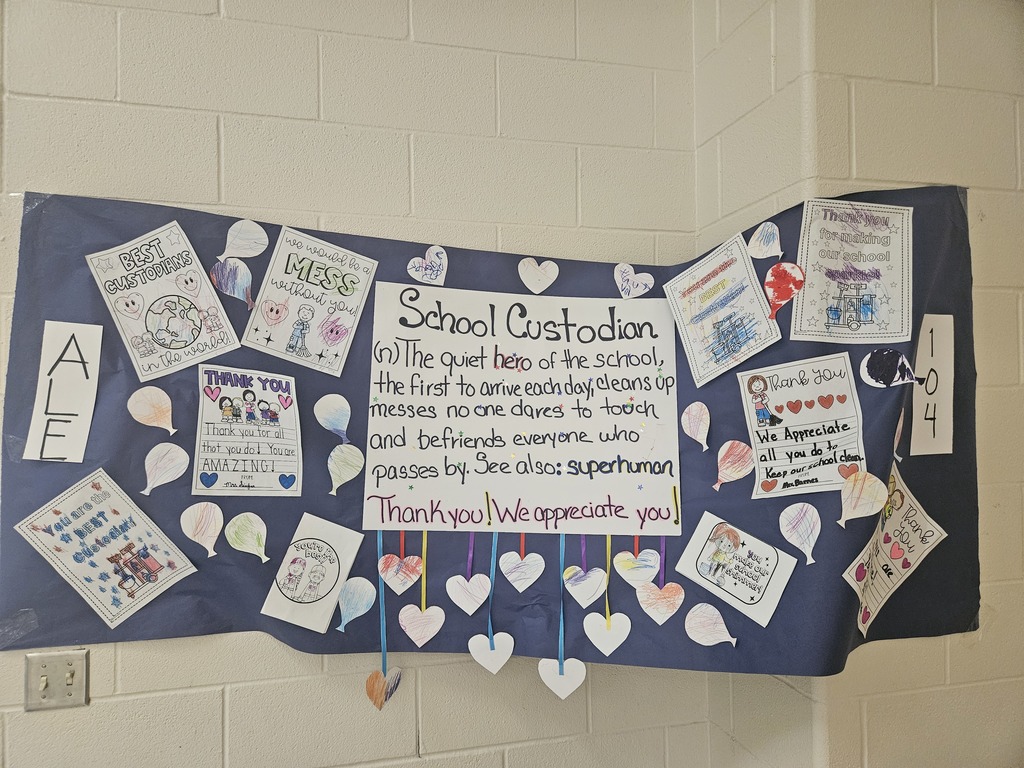 BEST
CUSTODIANS
in the world!
we would be a
MESS
without you!
School Custodian
(n) The quiet hero of the school,
the first to arrive each day, cleans up
messes no one dares to touch
and befriends everyone who
passes by. See also: superhuman
Thank you! We appreciate you!
BEST
Thank you
for making
our school
A
L
E
THANK YOU
Thank you for all
that you do! You are
AMAZING!
Thank You
We Appreciate
all you do to
Keep our school clean.
Mrs. Barnes
1
0
4
You are the
BEST
Custodian!
You're the
you
our
school
Thank
You
are